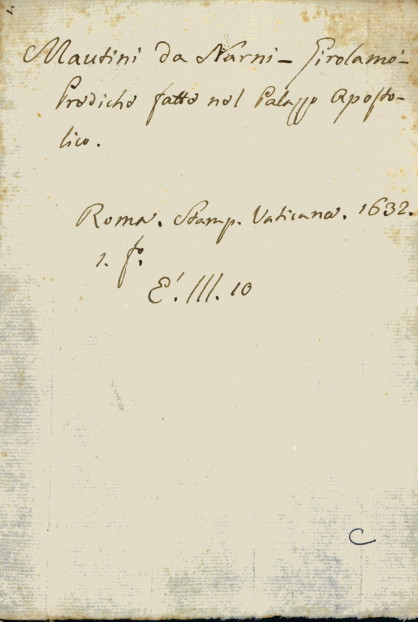 Mautini da Narni - Girolamo -
Prediche fatte nel Palazzo Aposto-
lico.
Roma. Stamp. Vaticana. 1632.
1. fº.
E'. III. 10
C